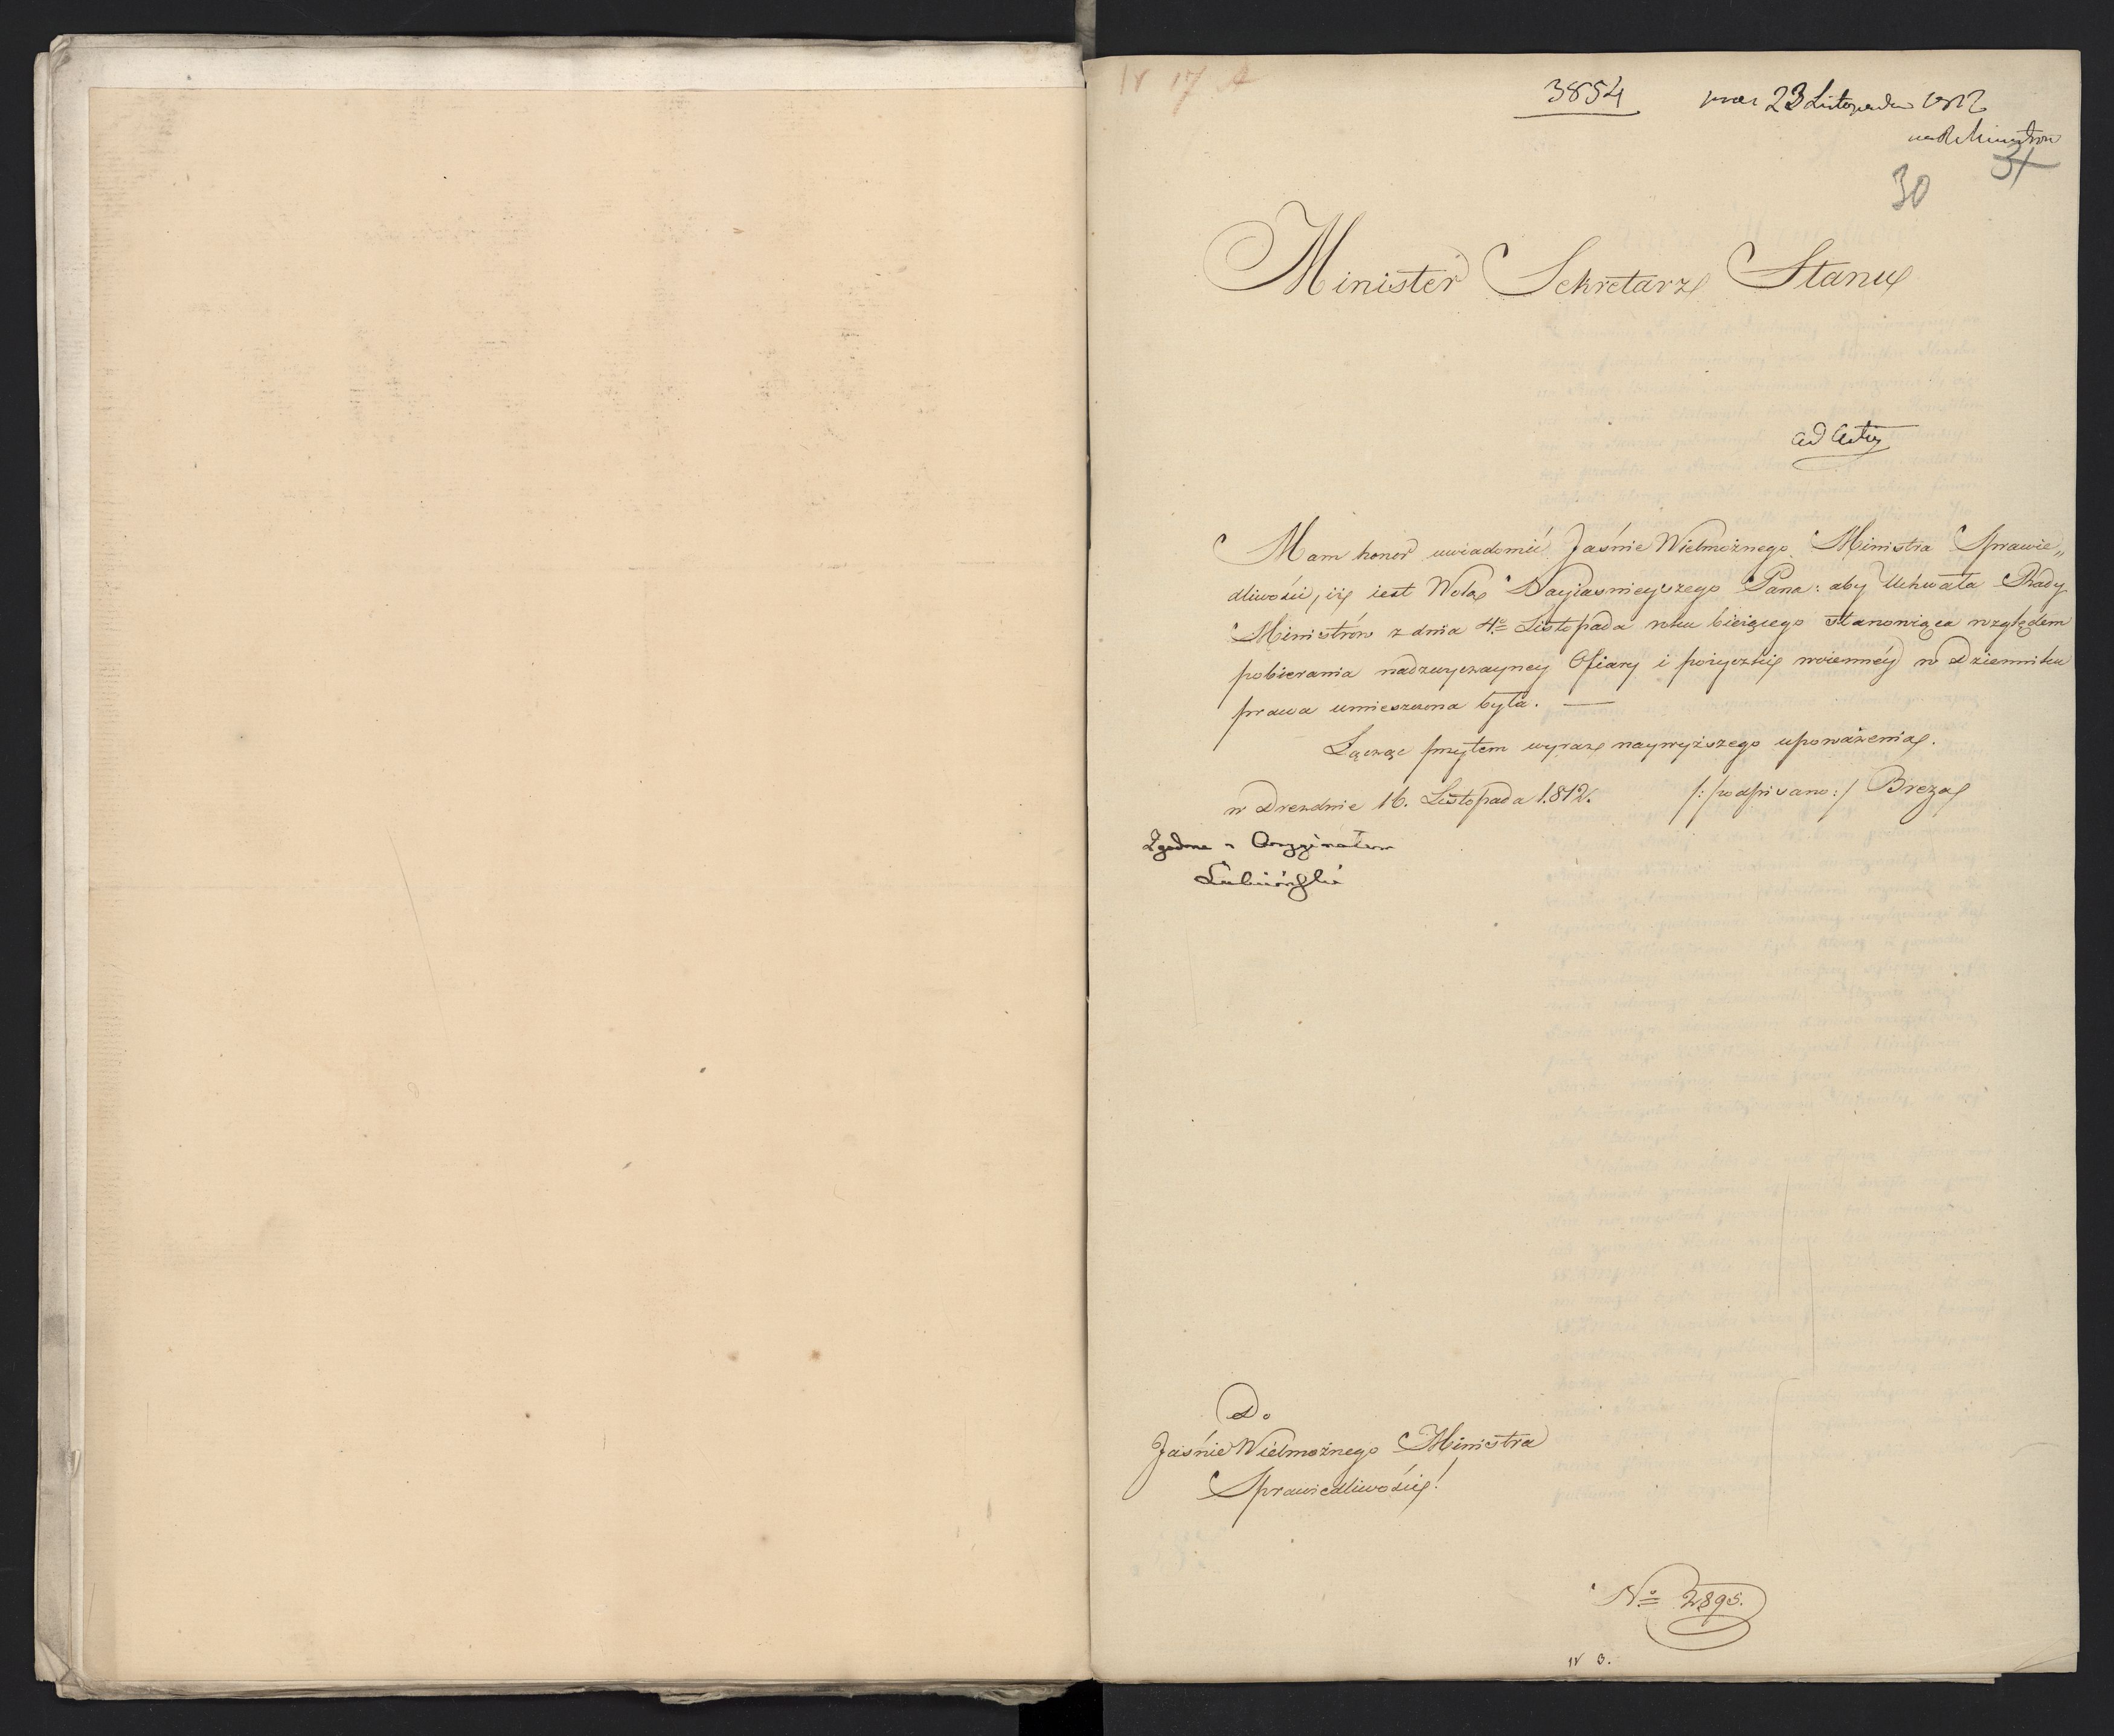 IV 17 A
3854 prae 23 Listopada 1812
na R. Ministrów
31
30
Minister Sekretarz Stanu
ad acta
Mam honor uwiadomić Jaśnie Wielmożnego Ministra Sprawie„
dliwości, iż iest Wolą Nayiasnieyszego Pana: aby Uchwała Rady
Ministrów z dnia 4º Listopada roku bieiącego stanowiąca względem
pobierania nadzwyczayney Ofiary i pożyczki woienney w Dzienniku
prawa umieszczona była. —
Łącząc przytem wyraz naywyższego upoważenia.
w Dreznie 16. Listopada 1812. /: podpisano :/ Breza
Zgodno z Oryginałem
Łubieński
Do
Jaśnie Wielmożnego Ministra
Sprawiedliwości!
Nº 2895.
IV 3.